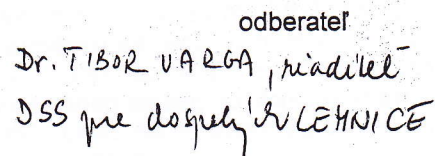 odberateľ
Dr. TIBOR VARGA, riaditeľ
DSS pre dospelých LEHNICE